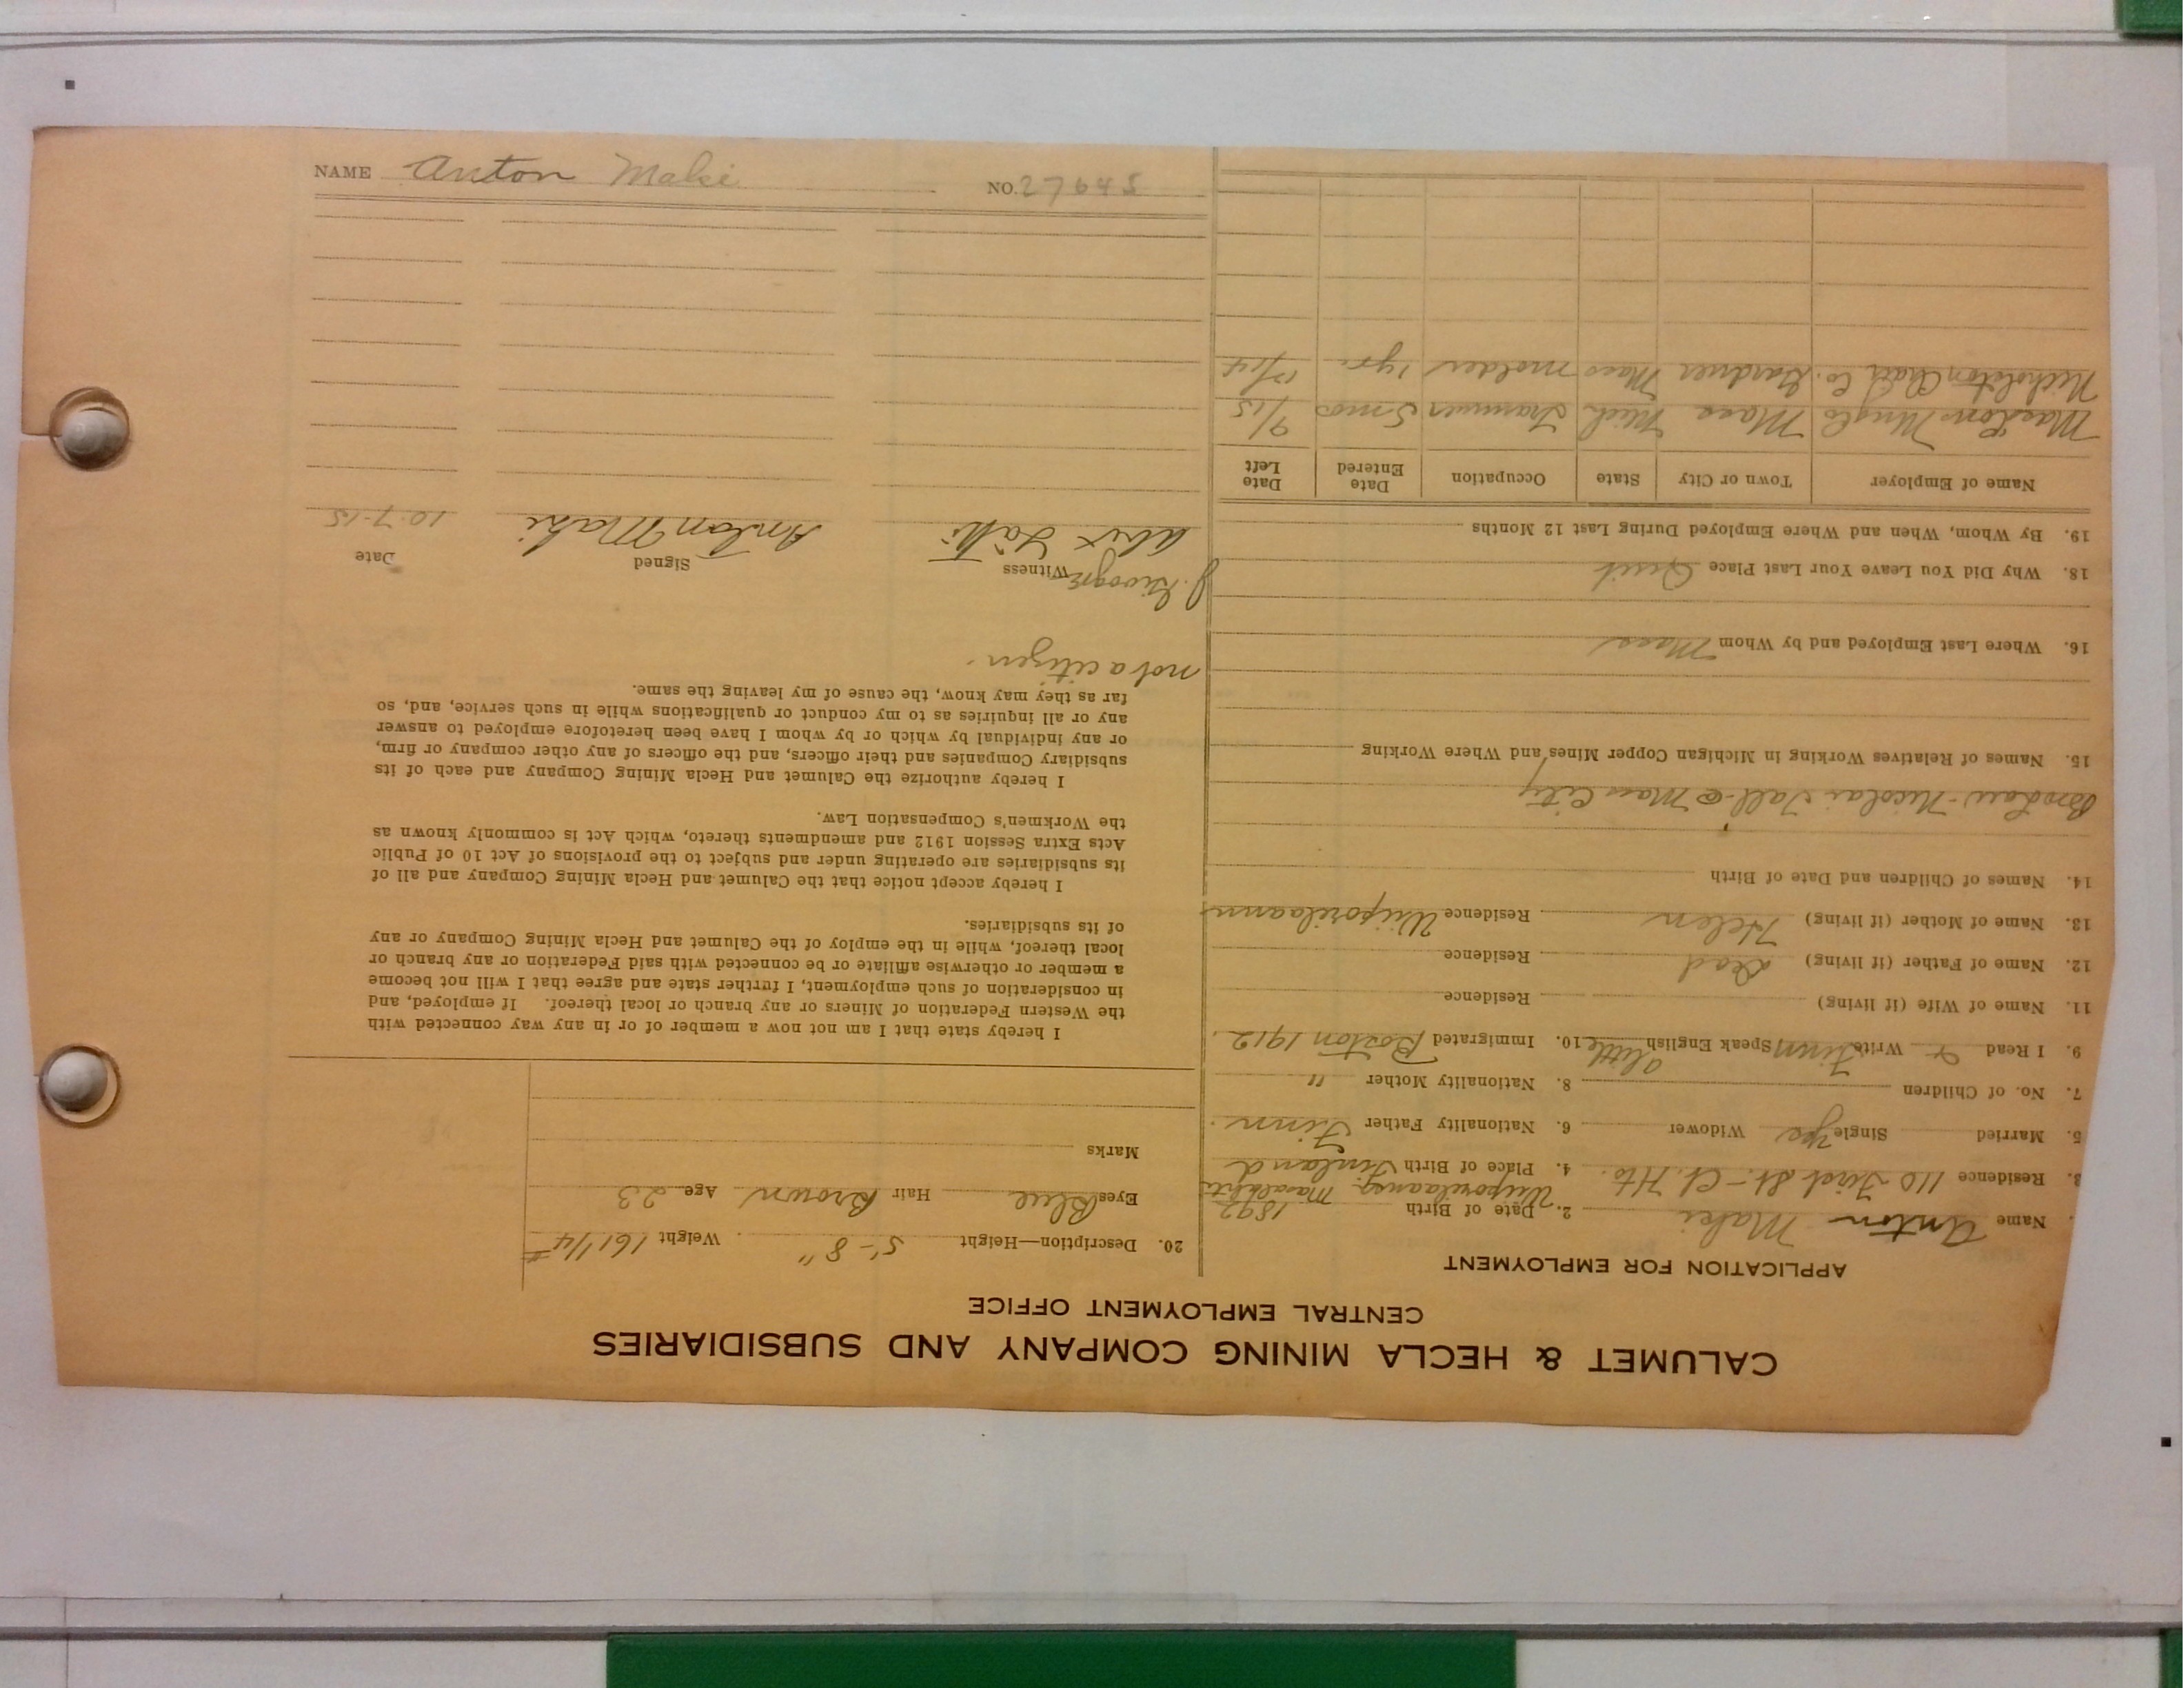 CALUMET & HECLA MINING COMPANY AND SUBSIDIARIES
CENTRAL EMPLOYMENT OFFICE
APPLICATION FOR EMPLOYMENT
Name Anton Maki 2. Date of Birth 1892
3. Residence 110 First St. - 4. Place of Birth Finland
5. Married Single Yes Widower 6. Nationality Father Finn.
7. No. of Children 8. Nationality Mother "
9. I Read & Write Finn Speak English little 10. Immigrated Boston 1912.
11. Name of Wife (if living) Residence
12. Name of Father (if living) Dead Residence
13. Name of Mother (if living) Helen Residence
14. Names of Children and Date of Birth
Bro Law - Nicolai @ Mass City
15. Names of Relatives Working in Michigan Copper Mines and Where Working
16. Where Last Employed and by Whom Mass
18. Why Did You Leave Your Last Place Quit
19. By Whom, When and Where Employed During Last 12 Months
Name of Employer Town or City State Occupation Date Entered Date Left
Mass Con Mng Co Mass Mich Trammer 5 mos 9/15
Gardner Mass molder 1 yr.
20. Description—Height 5'-8" Weight 161 1/4 #
Eyes Blue Hair Brown Age 23
Marks
I hereby state that I am not now a member of or in any way connected with
the Western Federation of Miners or any branch or local thereof. If employed, and
in consideration of such employment, I further state and agree that I will not become
a member or otherwise affiliate or be connected with said Federation or any branch or
local thereof, while in the employ of the Calumet and Hecla Mining Company or any
of its subsidiaries.
I hereby accept notice that the Calumet and Hecla Mining Company and all of
its subsidiaries are operating under and subject to the provisions of Act 10 of Public
Acts Extra Session 1912 and amendments thereto, which Act is commonly known as
the Workmen's Compensation Law.
I hereby authorize the Calumet and Hecla Mining Company and each of its
subsidiary Companies and their officers, and the officers of any other company or firm,
or any individual by which or by whom I have been heretofore employed to answer
any or all inquiries as to my conduct or qualifications while in such service, and, so
far as they may know, the cause of my leaving the same.
not a citizen.
Witness Signed Date
Anton Maki 10-7-15
NAME Anton Maki NO. 27645